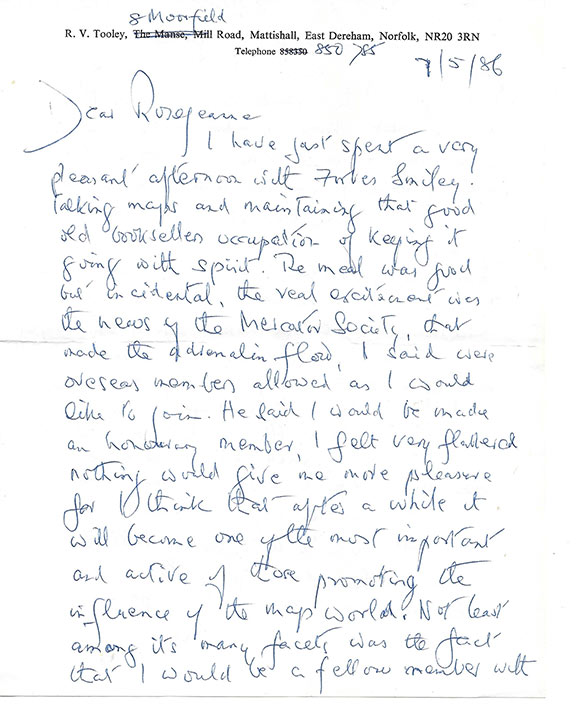 8 Moorfield
R. V. Tooley, The Manse, Mill Road, Mattishall, East Dereham, Norfolk, NR20 3RN
Telephone 858330 850 785
7/5/86
Dear Rosejeanne
I have just spent a very
pleasant afternoon with Forbes Smiley.
Talking maps and maintaining that good
old booksellers occupation of keeping it
going with spirit. The meal was good
but incidental, the real excitement was
the news of the Mercator Society, that
made the adrenalin flow, I said were
overseas members allowed as I would
like to join. He said I would be made
an honourary member, I felt very flattered
nothing would give me more pleasure
for I think that after a while it
will become one of the most important
and active of those promoting the
influence of the map world. Not least
among its many facets was the fact
that I would be a fellow member with